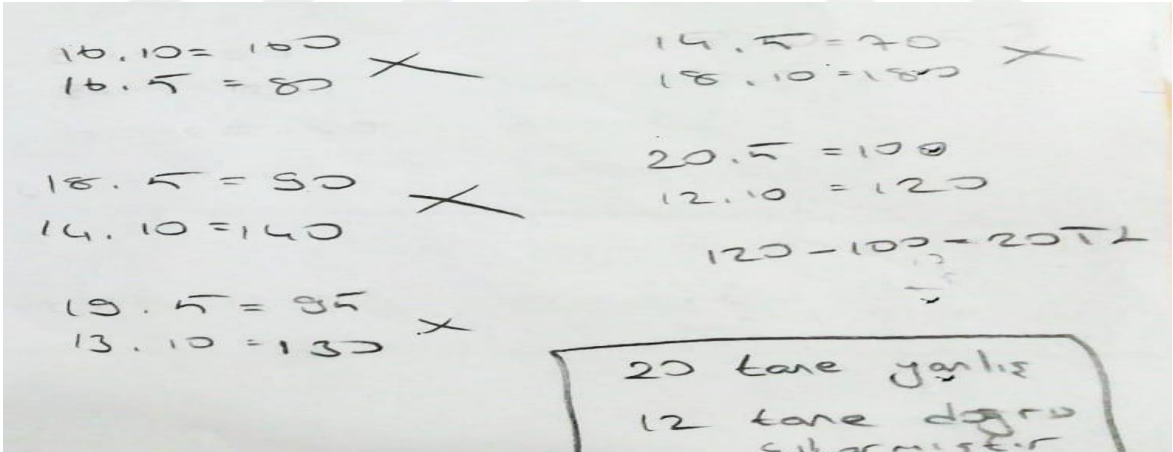 16.10= 160
16.5 = 80
18. 5 = 90
14. 10 =140
19. 5 = 95
13. 10 =130
14. 5 = 70
18. 10 =180
20.5 = 100
12.10 = 120
120-100=20TL
20 tane yanlış
12 tane doğru